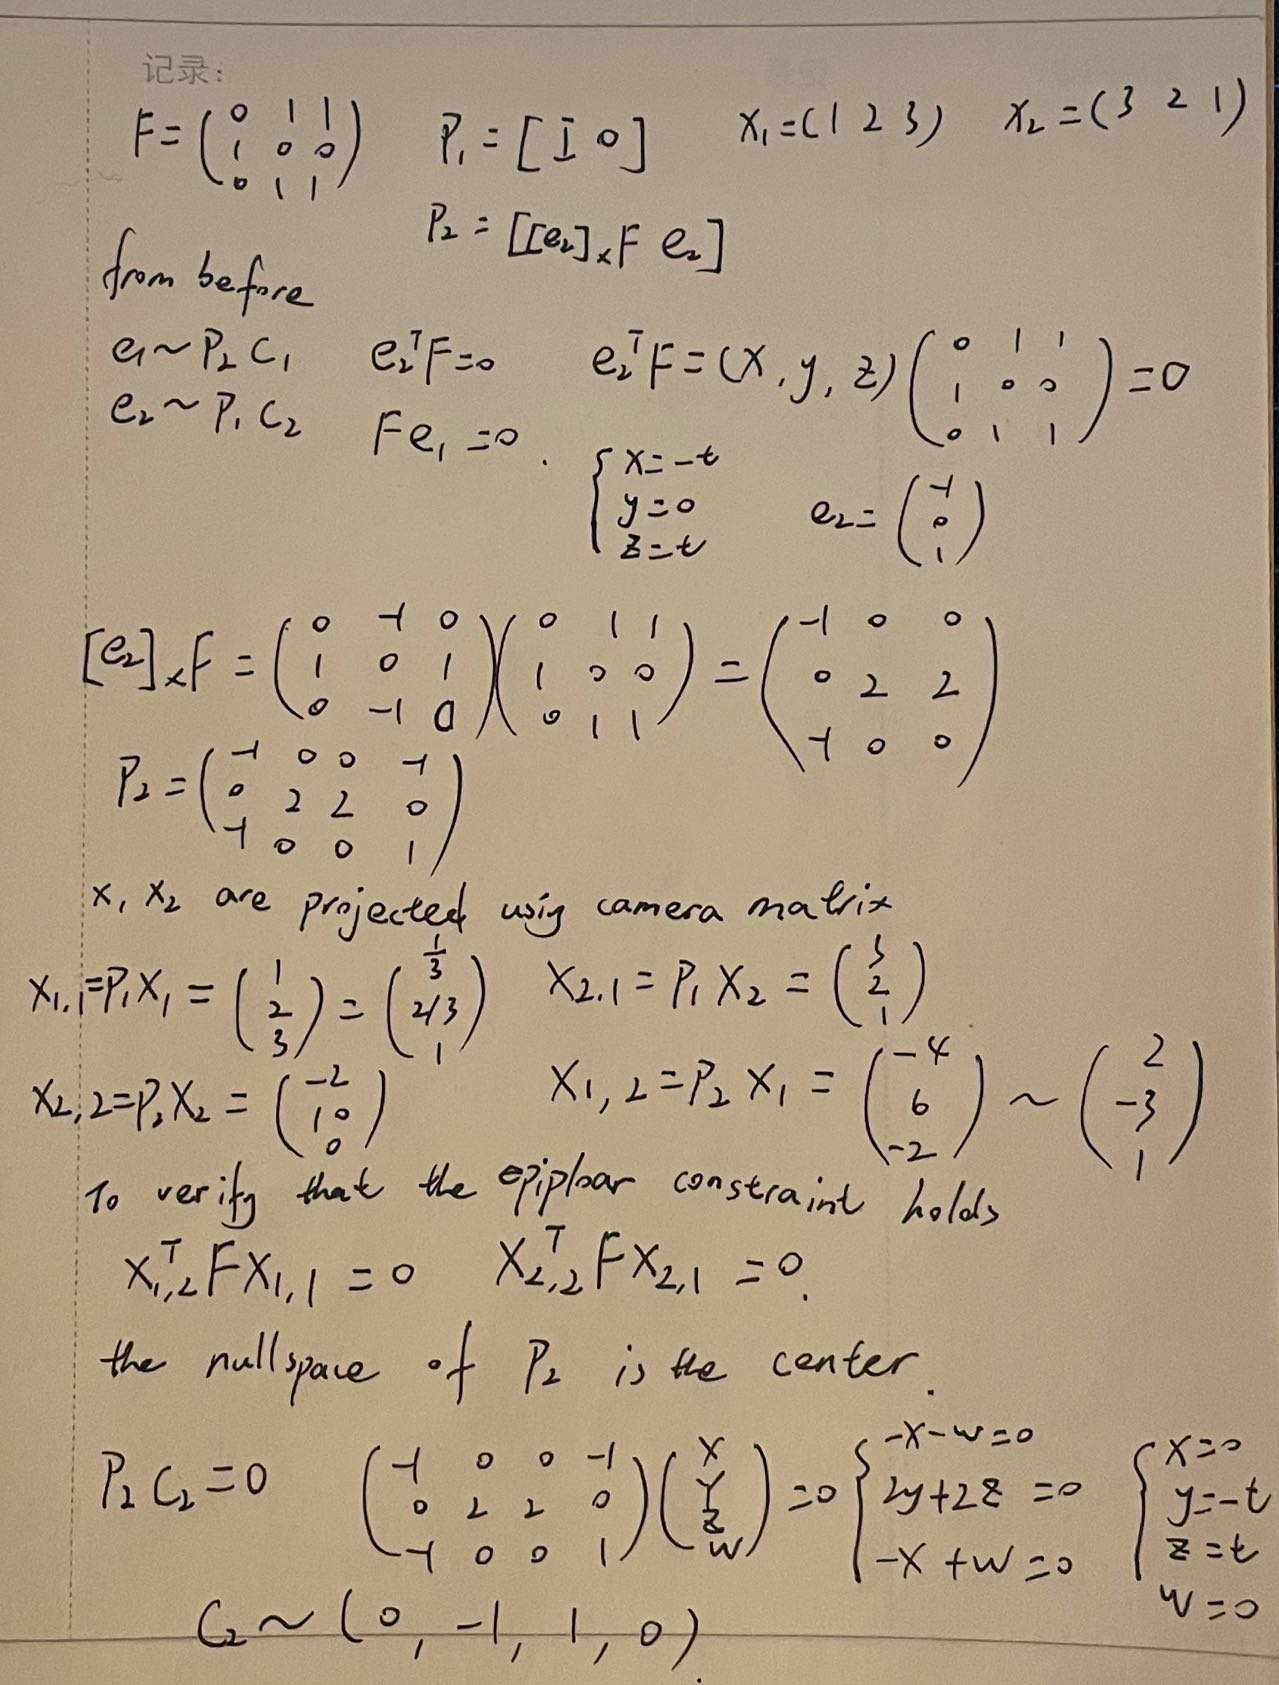 记录:
F = ( 0 1 1 ; 1 0 0 ; 0 1 1 ) P₁ = [I 0] X₁ = (1 2 3) X₂ = (3 2 1)
P₂ = [[e₂]ₓF e₂]
from before
e₁ ~ P₂ C₁ e₂ᵀF = 0 e₂ᵀF = (x, y, z) ( 0 1 1 ; 1 0 0 ; 0 1 1 ) = 0
e₂ ~ P₁ C₂ F e₁ = 0 .
{ x = -t ; y = 0 ; z = t e₂ = ( -1 ; 0 ; 1 )
[e₂]ₓF = ( 0 -1 0 ; 1 0 1 ; 0 -1 0 ) ( 0 1 1 ; 1 0 0 ; 0 1 1 ) = ( -1 0 0 ; 0 2 2 ; -1 0 0 )
P₂ = ( -1 0 0 -1 ; 0 2 2 0 ; -1 0 0 1 )
x₁ x₂ are projected using camera matrix
X₁,₁ = P₁X₁ = ( 1 ; 2 ; 3 ) = ( 1/3 ; 2/3 ; 1 ) X₂.₁ = P₁ X₂ = ( 3 ; 2 ; 1 )
X₂,₂ = P₂X₂ = ( -2 ; 10 ; 0 ) X₁,₂ = P₂ X₁ = ( -4 ; 6 ; -2 ) ~ ( 2 ; -3 ; 1 )
To verify that the epiploar constraint holds
X₁,₂ᵀ F X₁,₁ = 0 X₂,₂ᵀ F X₂,₁ = 0.
the nullspace of P₂ is the center.
P₂ C₂ = 0 ( -1 0 0 -1 ; 0 2 2 0 ; -1 0 0 1 ) ( X ; Y ; Z ; W ) = 0 { -X-W=0 ; 2y+2z=0 ; -X+W=0 { X=0 ; y=-t ; z=t ; W=0
C₂ ~ (0, -1, 1, 0).